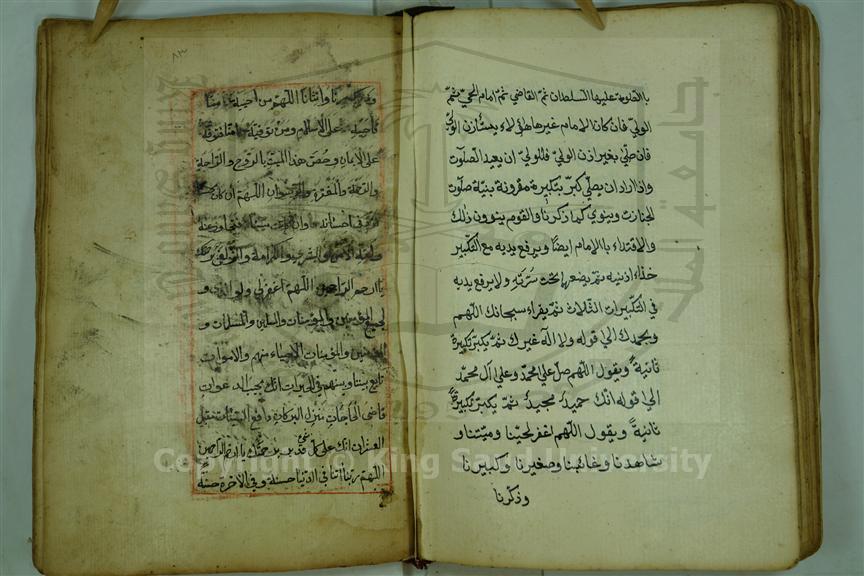 بالتقدمة عليها السلطان ثم القاضي ثم امام الحي ثم
الولي فان كان الامام غيرها هؤلاء يعشاذن الولي
فان صلى بغير اذن الولي فللولي ان يعيد الصلوت
واذا اراد ان يصلي كبر بتكبيرة مقرونة بنية صلوت
الجنازت وينوي كما ذكرنا والقوم ينوون ذلك
والاقتداء باالامام ايضا ويرفع يديه مع التكبير
حذاء اذنيه ثم يضعهما تحت سرته ولا يرفع يديه
في التكبيرات الثلاث ثم يقراء سبحانك اللهم
وبحمدك الى قوله ولا اله غيرك ثم يكبر تكبيرة
ثانية ويقول اللهم صل على محمد وعلى آل محمد
الى قوله انك حميد مجيد ثم يكبر تكبيرة
ثانية ويقول اللهم اغفر لحينا وميتنا و
شاهدنا وغائبنا وصغيرنا وكبيرنا
وذكرنا
٨٣
وذكرنا وانثانا اللهم من احييته منا
فاحيه على الاسلام ومن توفيته منا فتوفه
على الايمان وخص هذا الميت بالروح والراحة
والمغفرة والرضوان اللهم ان كان محسنا
فزد في احسانه وان كان مسيئا فتجاوز عنه
ولقه الامن والبشرى والكرامة والزلفى برحمتك
يا ارحم الراحمين اللهم اغفر لي ولوالدي و
لجميع المؤمنين والمؤمنات والمسلمين والمسلمات و
المؤمنين والمؤمنات الاحياء منهم والاموات
تابع بيننا وبينهم في الخيرات انك مجيب الدعوات
قاضى الحاجات منزل البركات دافع السيئات مقيل
العثرات انك على كل شئ قدير برحمتك يا ارحم الراحمين
اللهم ربنا آتنا في الدنيا حسنة وفي الآخرة حسنة
Copyright © King Saud University